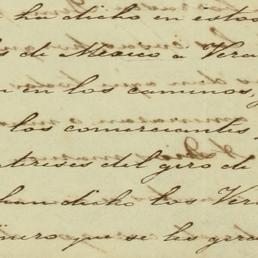 ha dicho en estos
de Mexico á Vera
en los caminos,
los comerciantes
intereses del giro de
han dicho los Ver
que se les gira